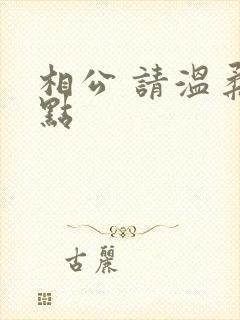 相公 請溫柔
點
古麗